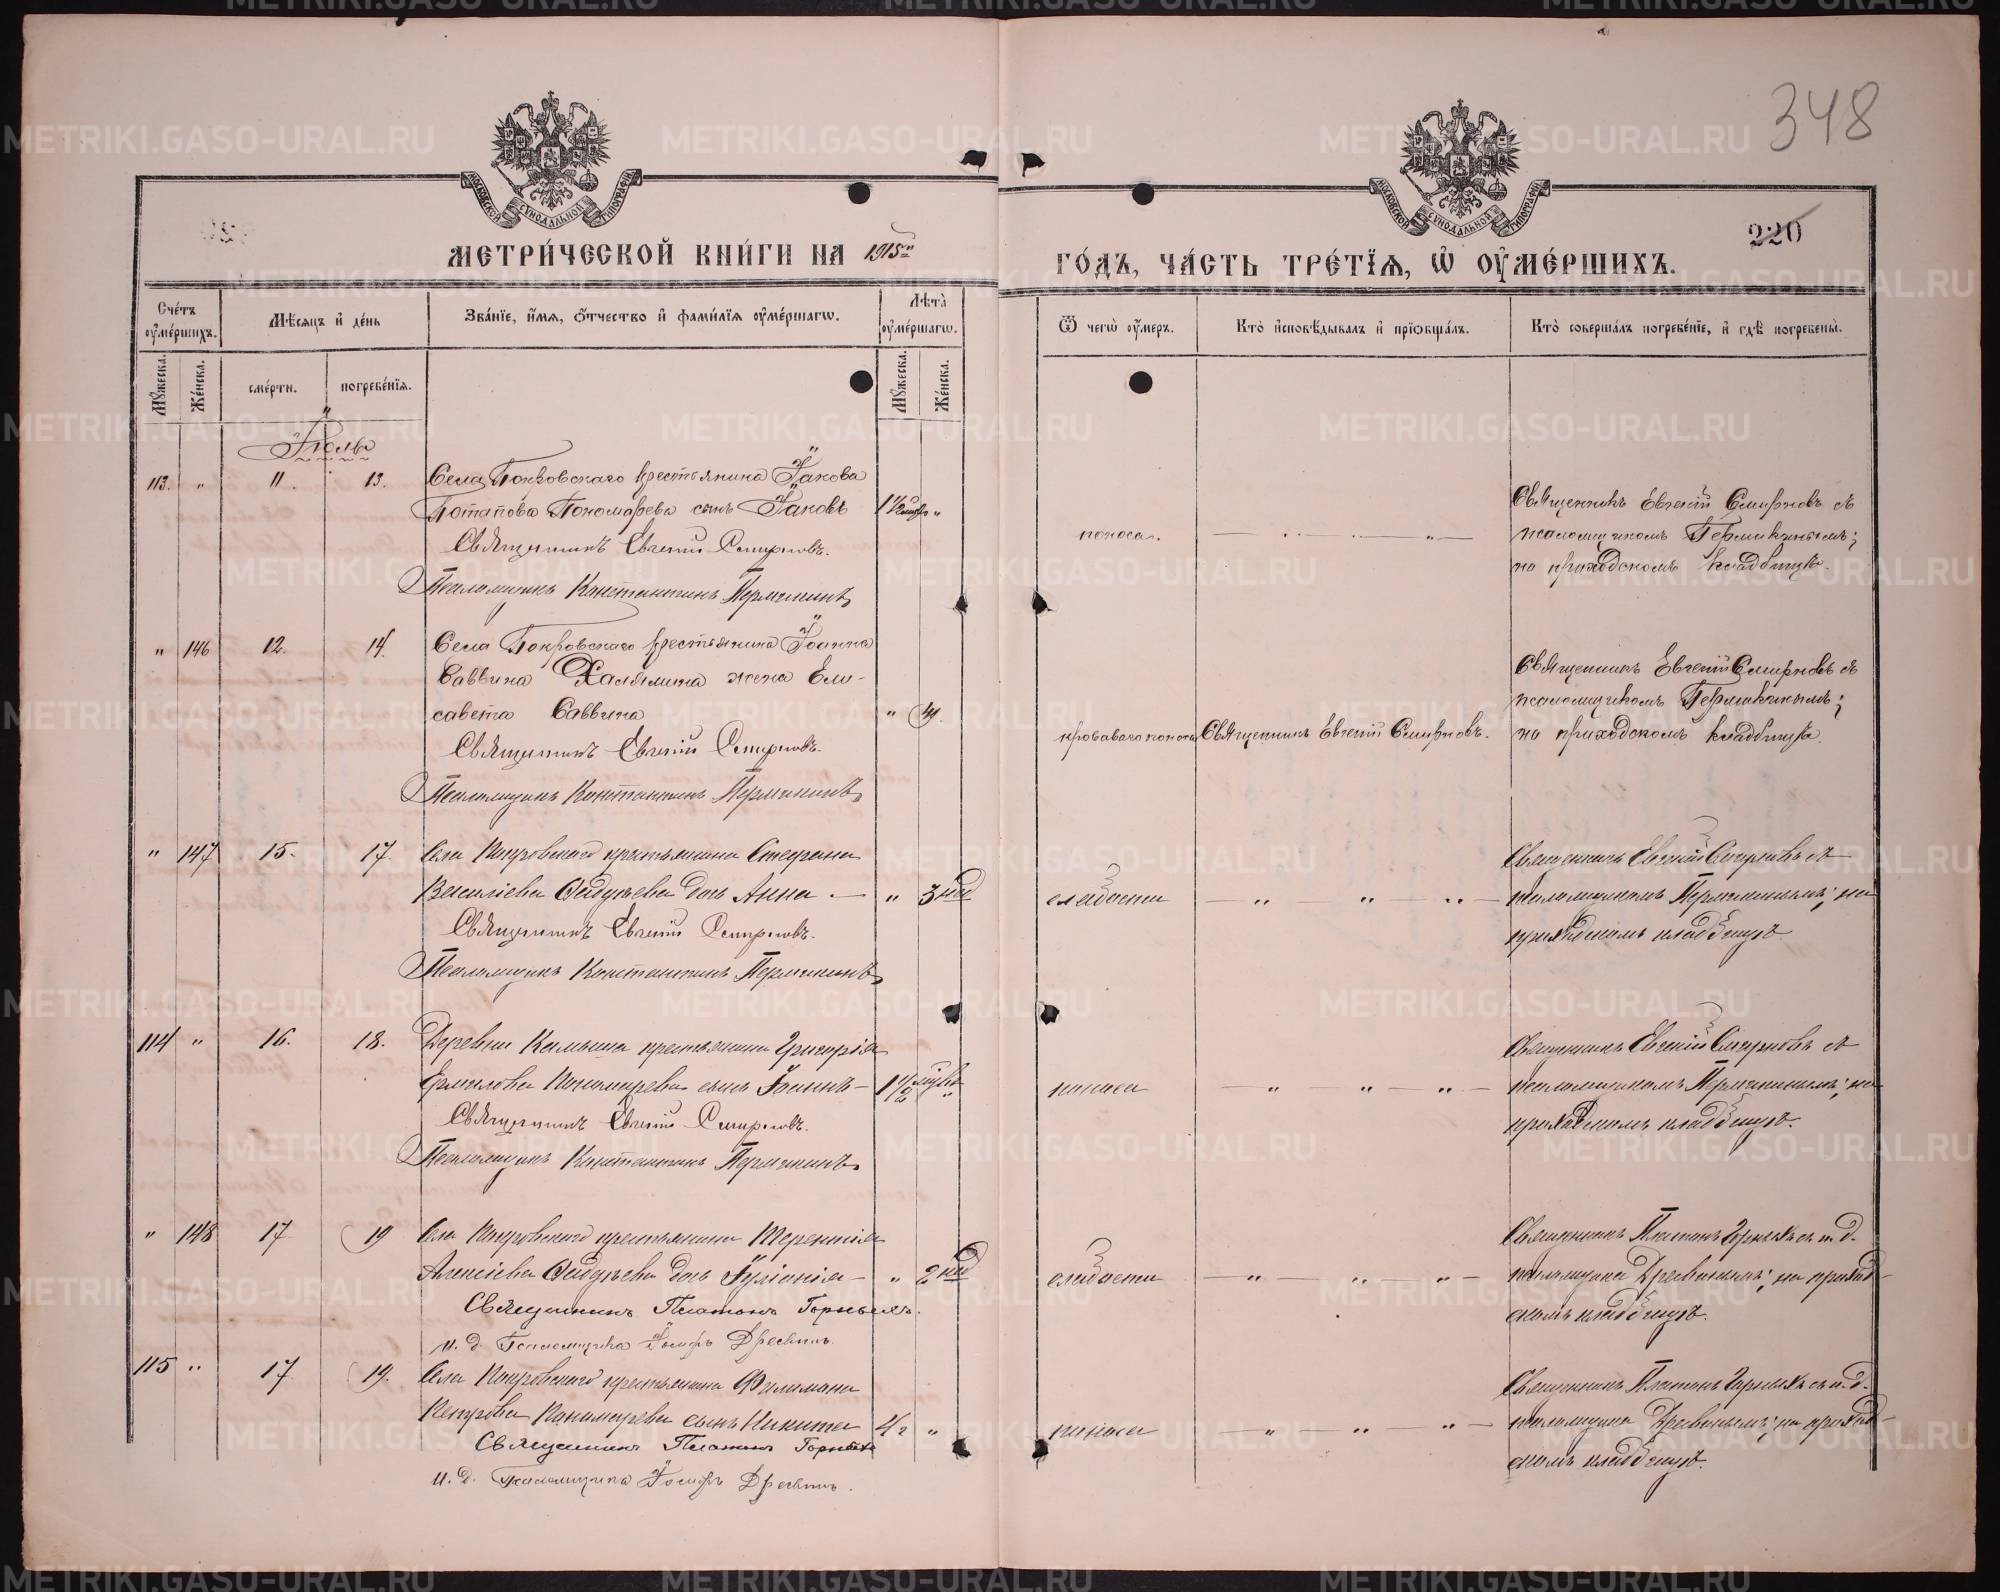 348
220
МОСКОВСКОЙ СѴНОДАЛЬНОЙ ТИПОГРАФІИ
МОСКОВСКОЙ СѴНОДАЛЬНОЙ ТИПОГРАФІИ
МЕТРИ́ЧЕСКОЙ КНИ́ГИ НА 1915й
ГО́ДЪ, ЧА́СТЬ ТРЕ́ТІѦ, Ѡ ОУМЕ́РШИХЪ.
Сче́тъ оуме́ршихъ.
Мѣсяцъ и де́нь
Зва́нїе, и́мя, ѻтчество и фами́лїя оуме́ршагѡ.
Лѣта̀ оуме́ршагѡ.
Ѿ чегѡ̀ оу́меръ.
Кто̀ исповѣ́дывалъ и прїѡбща́лъ.
Кто̀ соверша́лъ погребе́нїе, и гдѣ̀ погребены̀.
Мужеска.
Же́нска.
сме́рти.
погребе́нїя.
Мужеска.
Же́нска.
Іюль
113. " 11. 13. Села Покровскаго крестьянина Іакова
Потапова Пономарева сынъ Іаковъ 1½ "
Священникъ Евгеній Смирновъ.
Псаломщикъ Константинъ Пермикинъ
поноса. — " — Священникъ Евгеній Смирновъ съ
псаломщикомъ Пермикинымъ;
на приходскомъ кладбищѣ.
" 146 12. 14. Села Покровскаго крестьянина Іоанна
Саввина Халямина жена Ели-
савета Саввина "
Священникъ Евгеній Смирновъ.
Псаломщикъ Константинъ Пермикинъ
кроваваго поноса Священникъ Евгеній Смирновъ. Священникъ Евгеній Смирновъ съ
псаломщикомъ Пермикинымъ;
на приходскомъ кладбищѣ.
" 147 15. 17. Села Покровскаго крестьянина Стефана
Василіева дочь Анна — " 3 нед
Священникъ Евгеній Смирновъ.
Псаломщикъ Константинъ Пермикинъ
слабости — " " " — Священникъ Евгеній Смирновъ съ
псаломщикомъ Пермикинымъ; на
приходскомъ кладбищѣ.
114 " 16. 18. Деревни Камыша крестьянина Григорія
Ермилова Пономарева сынъ Іоаннъ — 1½ "
Священникъ Евгеній Смирновъ.
Псаломщикъ Константинъ Пермикинъ
поноса — " — " — " — Священникъ Евгеній Смирновъ съ
псаломщикомъ Пермикинымъ; на
приходскомъ кладбищѣ.
" 148 17 19 Села Покровскаго крестьянина Терентія
Алексіева дочь Іуліанія — " 2 нед
Священникъ Платонъ Горныхъ.
и. д. Псаломщика Іосифъ Дресвинъ.
слабости — " — " — " — Священникъ Платонъ Горныхъ съ и. д.
псаломщика Дресвинымъ; на приход-
скомъ кладбищѣ.
115 " 17 19. Села Покровскаго крестьянина Филимона
Петрова Пономарева сынъ Никита "
Священникъ Платонъ Горныхъ
и. д. Псаломщика Іосифъ Дресвинъ.
поноса — " — " — " — Священникъ Платонъ Горныхъ съ и. д.
псаломщика Дресвинымъ; на приход-
скомъ кладбищѣ.
METRIKI.GASO-URAL.RU